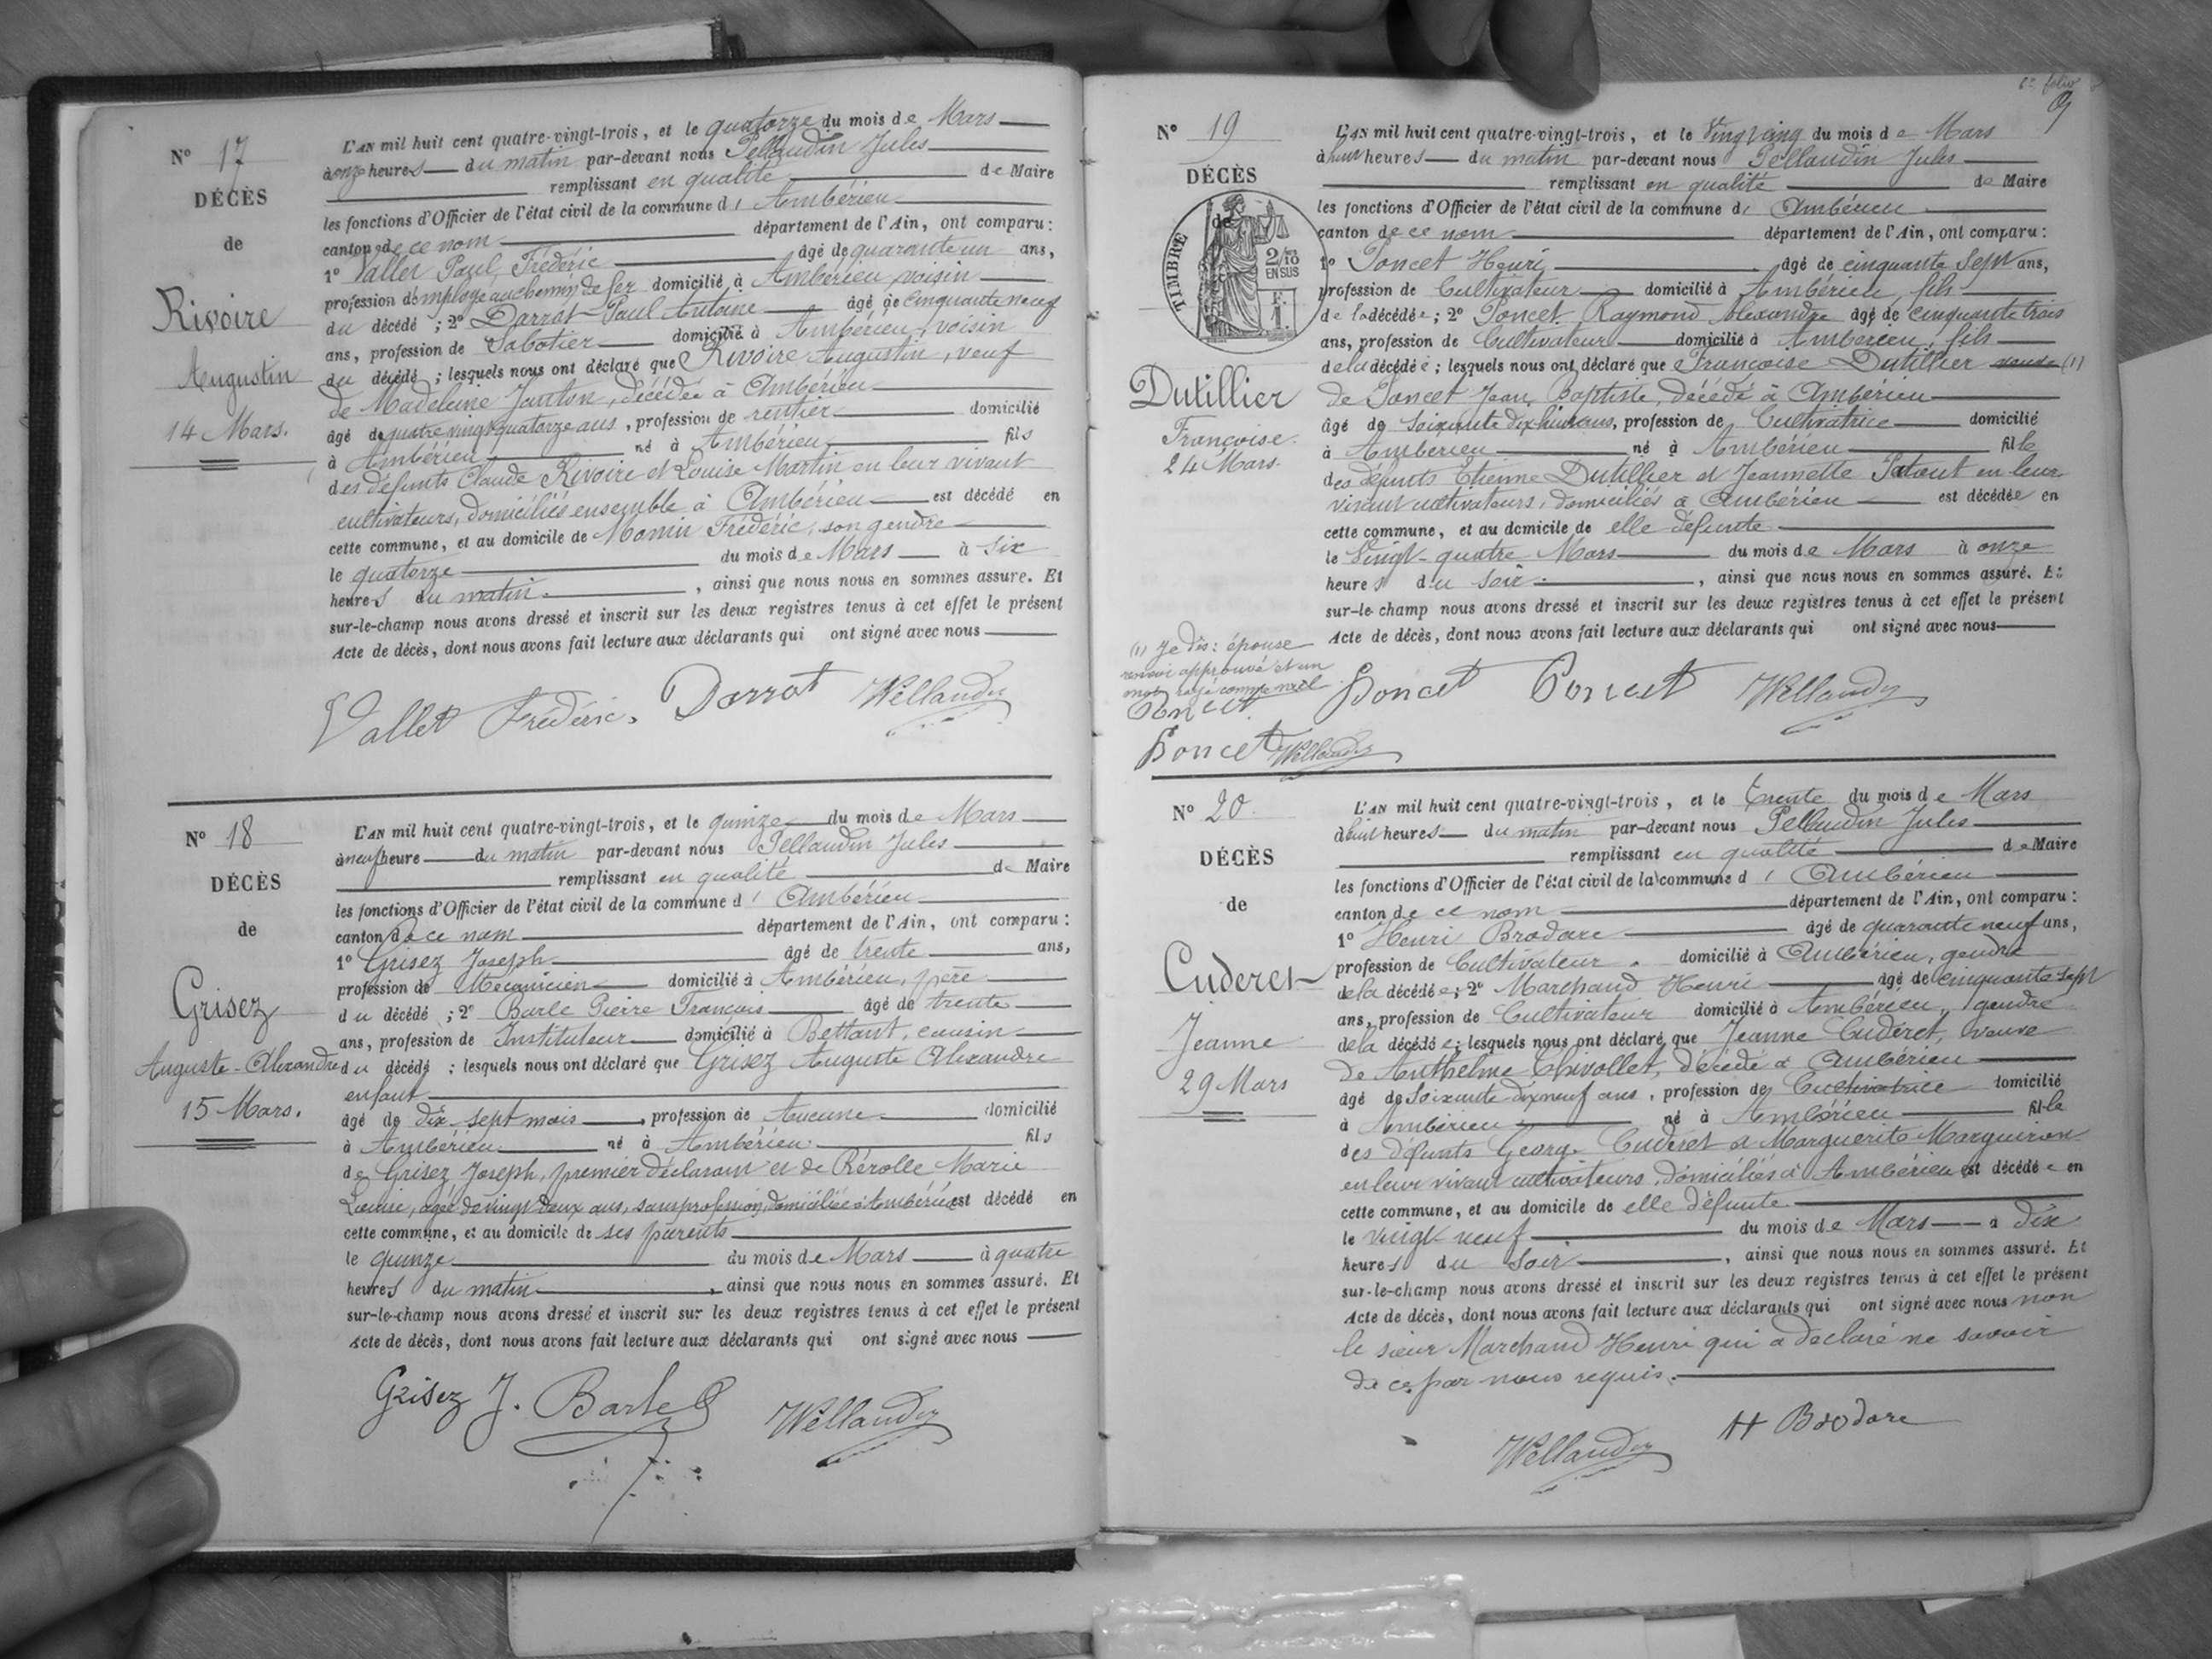 N° 17
DÉCÈS
de
Rivoire
Augustin
14 Mars.
L'AN mil huit cent quatre-vingt-trois, et le quatorze du mois de Mars
à onze heures du matin par-devant nous Pellaudin Jules
remplissant en qualité de Maire
les fonctions d'Officier de l'état civil de la commune d' Ambérieu
canton de ce nom département de l'Ain, ont comparu:
1° Vallet Paul Frédéric âgé de quarante un ans,
profession d'employé au chemin de fer domicilié à Ambérieu, voisin
du décédé; 2° Darrot Paul Antoine âgé de cinquante neuf
ans, profession de Sabotier domicilié à Ambérieu, voisin
du décédé; lesquels nous ont déclaré que Rivoire Augustin, veuf
de Madeleine Janton, décédée à Ambérieu
âgé de quatre vingt quatorze ans, profession de rentier domicilié
à Ambérieu né à Ambérieu fils
des défunts Claude Rivoire et Louise Martin en leur vivant
cultivateurs, domiciliés ensemble à Ambérieu est décédé en
cette commune, et au domicile de Monin Frédéric, son gendre
le quatorze du mois de Mars à six
heures du matin, ainsi que nous nous en sommes assuré. Et
sur-le-champ nous avons dressé et inscrit sur les deux registres tenus à cet effet le présent
Acte de décès, dont nous avons fait lecture aux déclarants qui ont signé avec nous
Vallet Frédéric. Darrot
N° 18
DÉCÈS
de
Grisez
Auguste-Alexandre
15 Mars.
L'AN mil huit cent quatre-vingt-trois, et le quinze du mois de Mars
à neuf heure du matin par-devant nous Pellaudin Jules
remplissant en qualité de Maire
les fonctions d'Officier de l'état civil de la commune d' Ambérieu
canton de ce nom département de l'Ain, ont comparu:
1° Grisez Joseph âgé de trente ans,
profession de Mécanicien domicilié à Ambérieu, père
du décédé; 2° Barle Pierre François âgé de trente
ans, profession de Instituteur domicilié à Bettant, cousin
du décédé; lesquels nous ont déclaré que Grisez Auguste Alexandre
enfant
âgé de dix sept mois, profession de Aucune domicilié
à Ambérieu né à Ambérieu fils
de Grisez Joseph, premier déclarant et de Rérolle Marie
Louise, agée de vingt deux ans, sans profession, domiciliée à Ambérieu est décédé en
cette commune, et au domicile de ses parents
le quinze du mois de Mars à quatre
heures du matin, ainsi que nous nous en sommes assuré. Et
sur-le-champ nous avons dressé et inscrit sur les deux registres tenus à cet effet le présent
Acte de décès, dont nous avons fait lecture aux déclarants qui ont signé avec nous
Grisez J. Barle
9
N° 19
DÉCÈS
de
TIMBRE
2/10
EN SUS
Dutillier
Françoise.
24 Mars.
L'AN mil huit cent quatre-vingt-trois, et le vingt cinq du mois de Mars
à huit heures du matin par-devant nous Pellaudin Jules
remplissant en qualité de Maire
les fonctions d'Officier de l'état civil de la commune d' Ambérieu
canton de ce nom département de l'Ain, ont comparu:
1° Poncet Henri âgé de cinquante sept ans,
profession de Cultivateur domicilié à Ambérieu, fils
de la décédée; 2° Poncet Raymond Alexandre âgé de cinquante trois
ans, profession de Cultivateur domicilié à Ambérieu, fils
de la décédée; lesquels nous ont déclaré que Françoise Dutillier veuve (1)
de Poncet Jean Baptiste, décédé à Ambérieu
âgé de soixante dix huit ans, profession de Cultivatrice domicilié
à Ambérieu né à Ambérieu fille
des défunts Etienne Dutillier et Jeannette Patout en leur
vivant cultivateurs, domiciliés à Ambérieu est décédée en
cette commune, et au domicile de elle défunte
le vingt-quatre Mars du mois de Mars à onze
heures du soir, ainsi que nous nous en sommes assuré. Et
sur-le-champ nous avons dressé et inscrit sur les deux registres tenus à cet effet le présent
Acte de décès, dont nous avons fait lecture aux déclarants qui ont signé avec nous
(1) Je dis: épouse
renvoi approuvé et un
mot rayé comme nul
Poncet Poncet
Poncet
Poncet
N° 20
DÉCÈS
de
Cuderet
Jeanne
29 Mars
L'AN mil huit cent quatre-vingt-trois, et le trente du mois de Mars
à huit heures du matin par-devant nous Pellaudin Jules
remplissant en qualité de Maire
les fonctions d'Officier de l'état civil de la commune d' Ambérieu
canton de ce nom département de l'Ain, ont comparu:
1° Henri Brodare âgé de quarante neuf ans,
profession de Cultivateur domicilié à Ambérieu, gendre
de la décédée; 2° Marchand Henri âgé de cinquante sept
ans, profession de Cultivateur domicilié à Ambérieu, gendre
de la décédée; lesquels nous ont déclaré que Jeanne Cuderet, veuve
de Anthelme Chivollet, décédé à Ambérieu
âgé de soixante dix neuf ans, profession de Cultivatrice domicilié
à Ambérieu né à Ambérieu fille
des défunts George Cuderet et Marguerite Marguiron
en leur vivant cultivateurs, domiciliés à Ambérieu est décédée en
cette commune, et au domicile de elle défunte
le vingt neuf du mois de Mars à dix
heures du soir, ainsi que nous nous en sommes assuré. Et
sur-le-champ nous avons dressé et inscrit sur les deux registres tenus à cet effet le présent
Acte de décès, dont nous avons fait lecture aux déclarants qui ont signé avec nous non
le sieur Marchand Henri qui a déclaré ne savoir
de ce par nous requis.
H Brodare